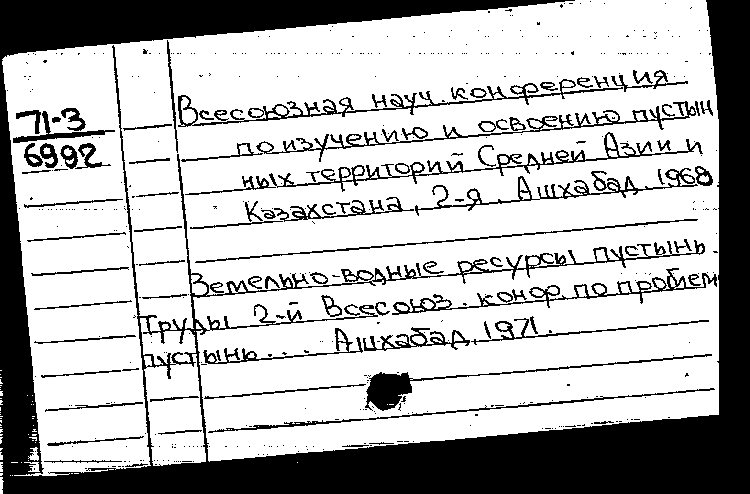 71-3
6992
Всесоюзная науч. конференция
по изучению и освоению пустын
ных территорий Средней Азии и
Казахстана, 2-я. Ашхабад. 1968
Земельно-водные ресурсы пустынь.
Труды 2-й Всесоюз. конф. по проблем
пустынь... Ашхабад, 1971.